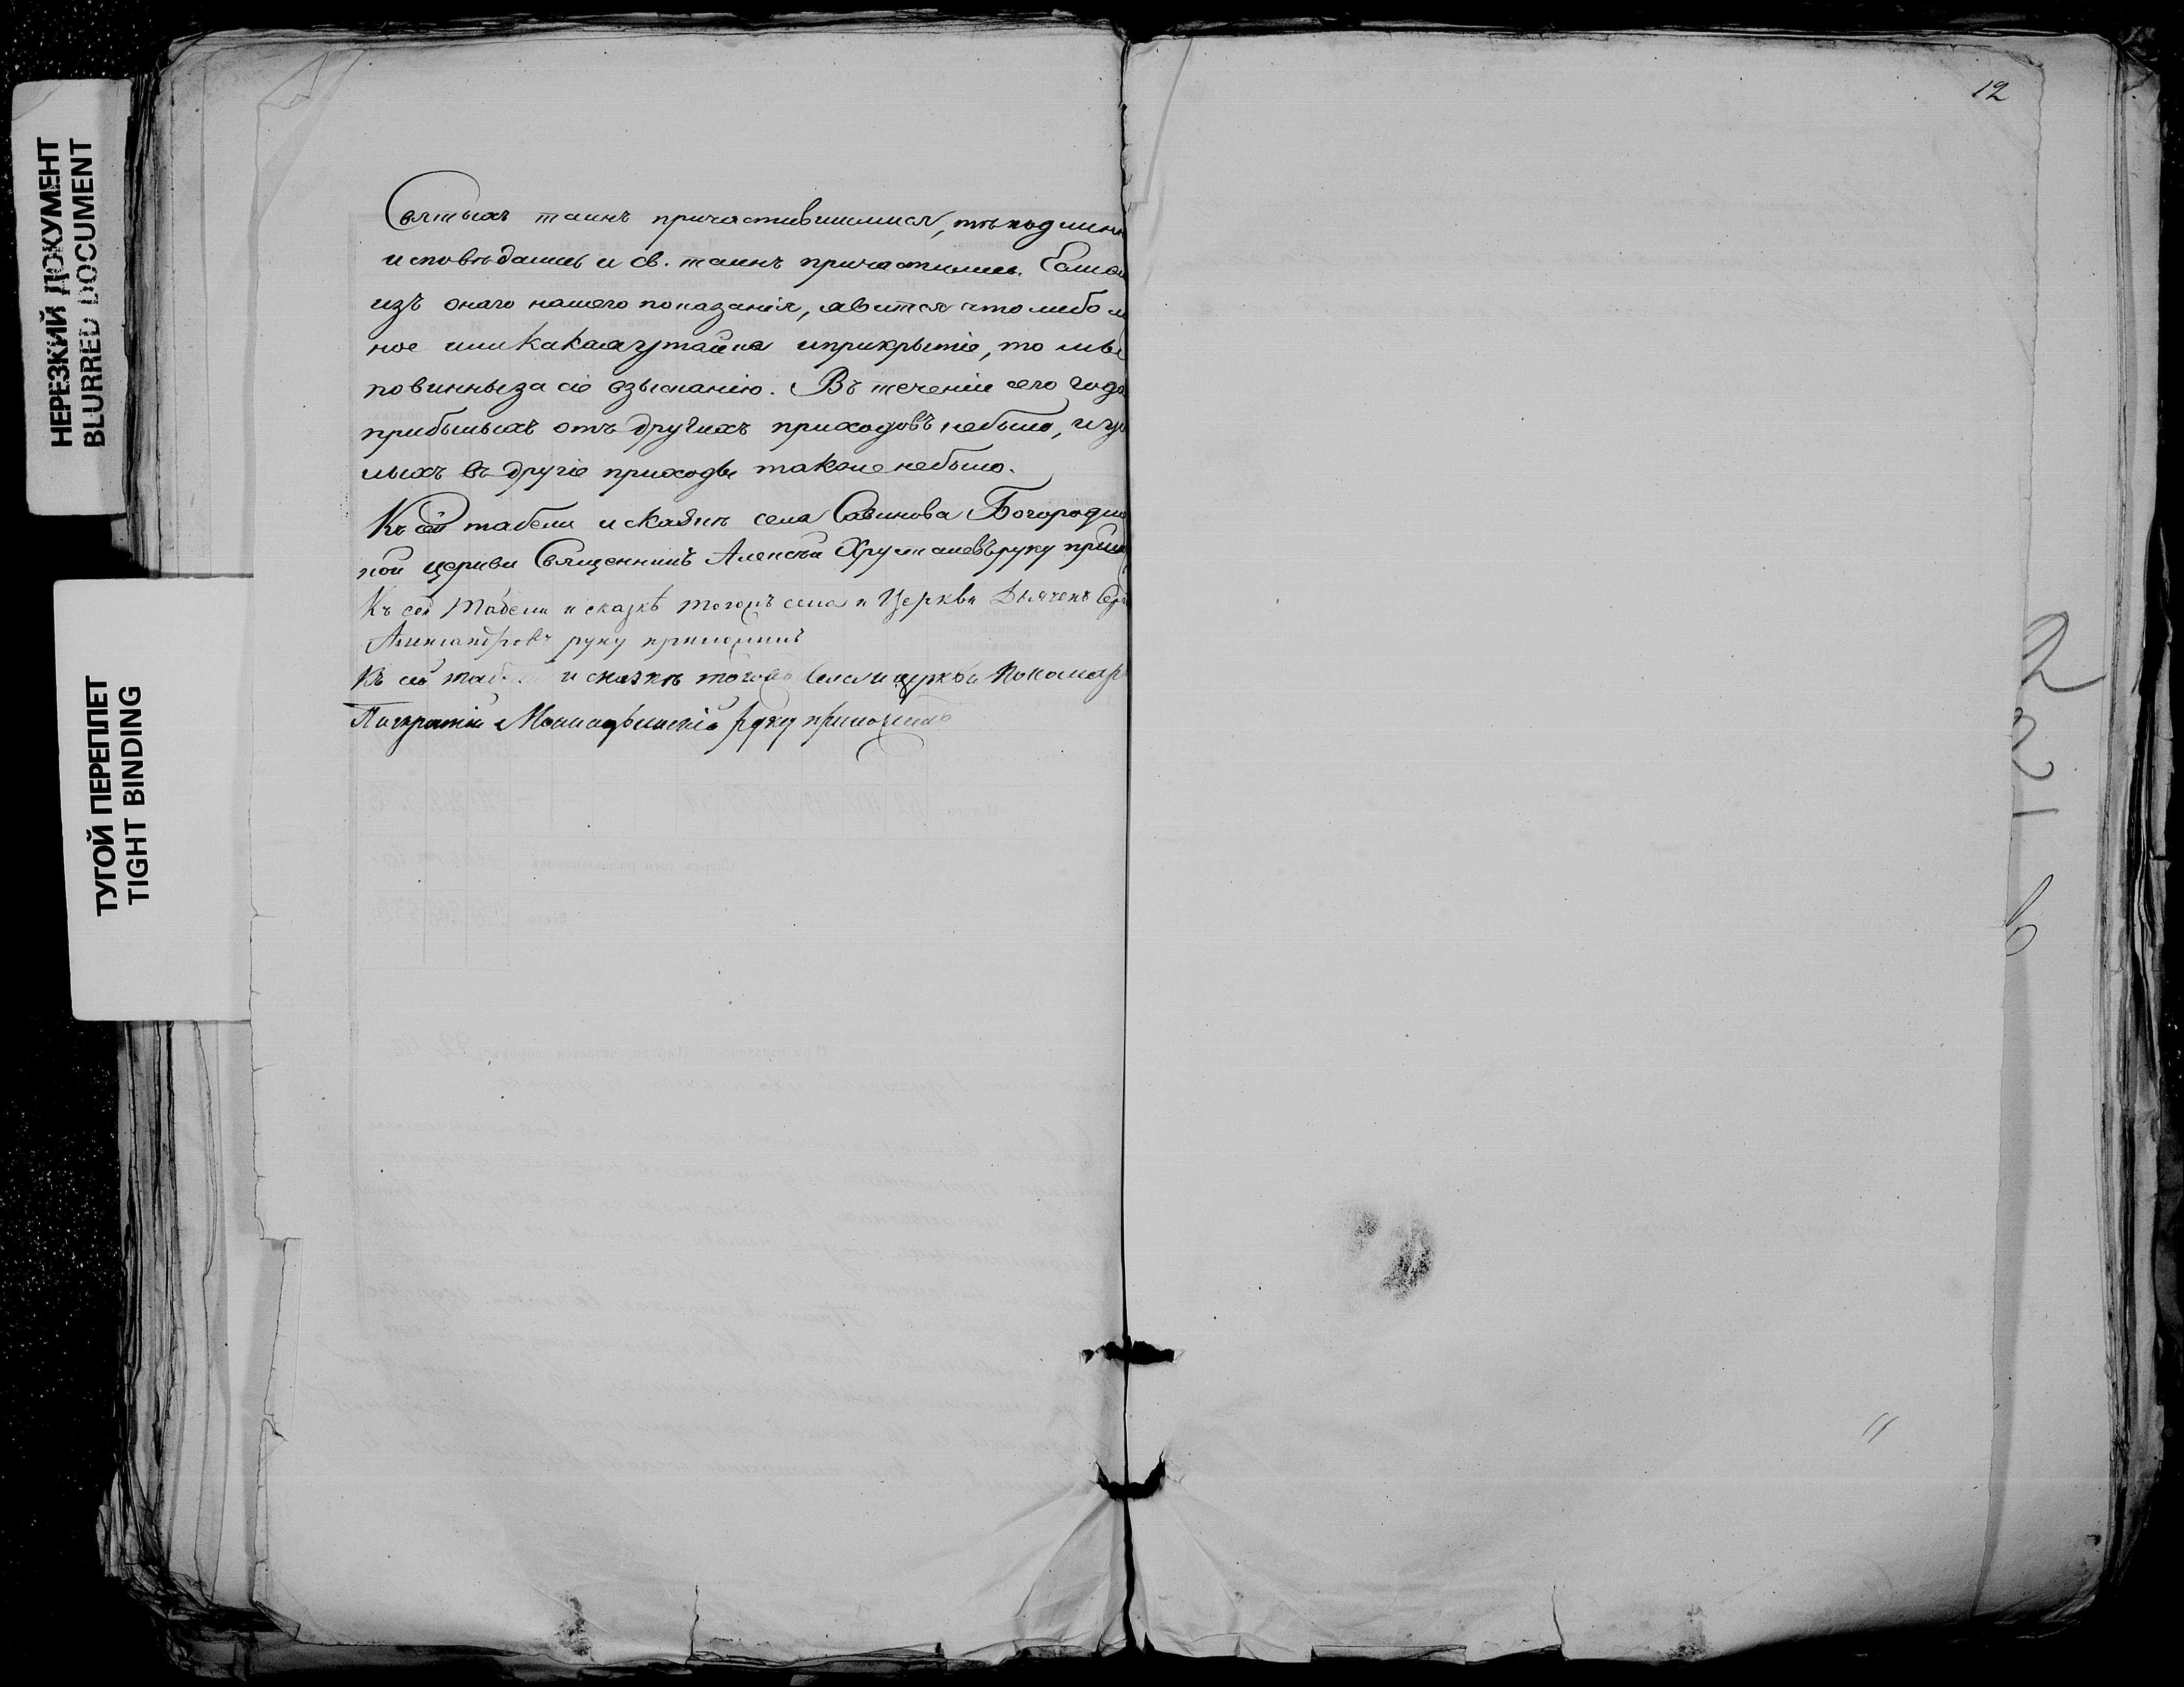 12
НЕРЕЗКИЙ ДОКУМЕНТ
BLURRED DOCUMENT
ТУГОЙ ПЕРЕПЛЕТ
TIGHT BINDING
Святыхъ таинъ причастившимися, тѣ подлин
исповѣдались и св. таинъ причастились. Если
изъ онаго нашего показанія, явится что либо
ное или какая утайка и прикрытіе, то мы
повинны за сіе взысканію. Въ теченіи сего года
прибылыхъ отъ другихъ приходовъ небыло, и у
лыхъ въ другіе приходы также небыло.
Къ сей табели и сказкѣ села Савинова Богородиц
кой церкви Священникъ Алексѣй Хрусталевъ руку прило
Къ сей табели и сказкѣ тогожъ села и Церкви Дьячекъ
Александровъ руку приложилъ
Къ сей и сказкѣ тогожъ Села и церкви Пономарь
Панкратій руку приложилъ